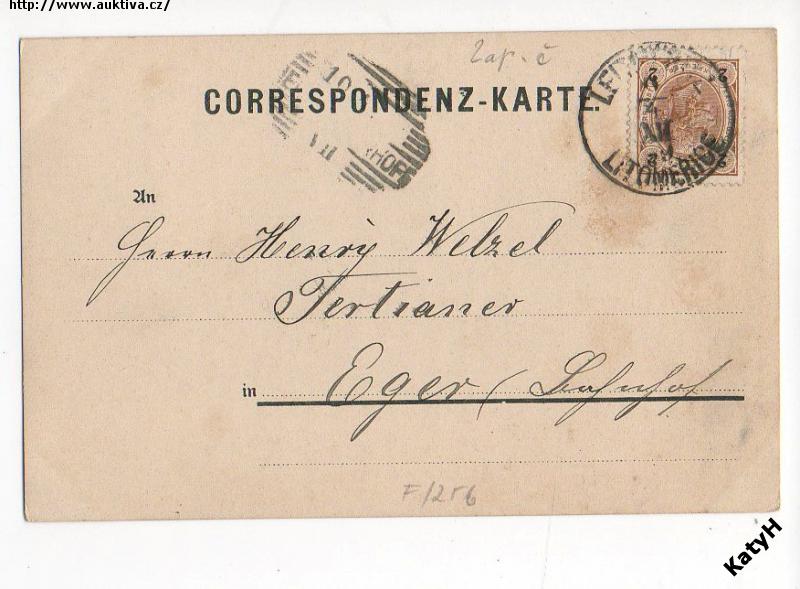 http://www.auktiva.cz/
Zap. č
CORRESPONDENZ-KARTE.
LITOMĚŘICE
2 2
An
Herrn Henry Welzel
Tertianer
in Eger (Bahnhof
F/256
KatyH